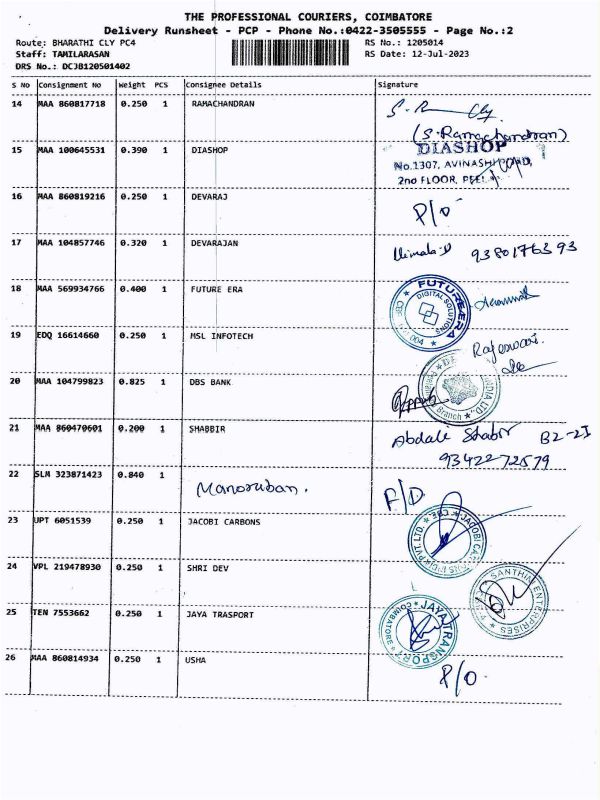 THE PROFESSIONAL COURIERS, COIMBATORE
Delivery Runsheet - PCP - Phone No.:0422-3505555 - Page No.:2
Route: BHARATHI CLY PC4 RS No.: 1205014
Staff: TAMILARASAN RS Date: 12-Jul-2023
DRS No.: DCJB120501402
S No Consignment No Weight PCS Consignee Details Signature
14 MAA 860817718 0.250 1 RAMACHANDRAN
(S.Ramachandran)
15 MAA 100645531 0.390 1 DIASHOP DIASHOP
No.1307, AVINASHI ROAD,
2nd FLOOR,
16 MAA 860819216 0.250 1 DEVARAJ P/O
17 MAA 104857746 0.320 1 DEVARAJAN Vimala.D 9380176393
18 MAA 569934766 0.400 1 FUTURE ERA FUTURE ERA DIGITAL SOLUTIONS
19 EDQ 16614660 0.250 1 MSL INFOTECH Rajeswari
20 MAA 104799823 0.825 1 DBS BANK Branch INDIA LTD.,
21 MAA 860470601 0.200 1 SHABBIR Abdali Shabbir B2-2I
9342272579
22 SLM 323871423 0.840 1 Manoruban. P/D.
23 UPT 6051539 0.250 1 JACOBI CARBONS JACOBI PVT. LTD. CBE
24 VPL 219478930 0.250 1 SHRI DEV SANTHIM ENTERPRISES
25 TEN 7553662 0.250 1 JAYA TRASPORT JAYA TRANSPORT COIMBATORE
26 MAA 860814934 0.250 1 USHA P/O.